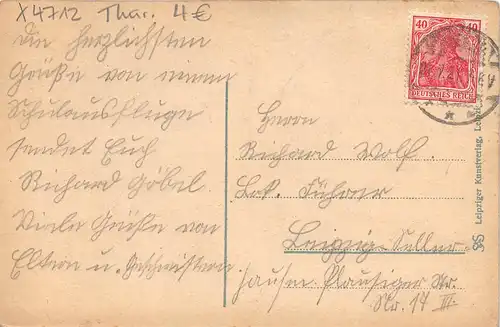 X4712 Thür. 4€
Die herzlichsten
Grüße von einem
Schulausfluge
sendet Euch
Richard Göbel.
Viele Grüße von
Eltern u. Geschwistern
40 40
DEUTSCHES REICH
Herrn
Richard Wolf.
Lok. Führer
Leipzig-Seller-
hausen Plausiger Str.
Nr. 17 III.
Leipziger Kunstverlag, Leipzig